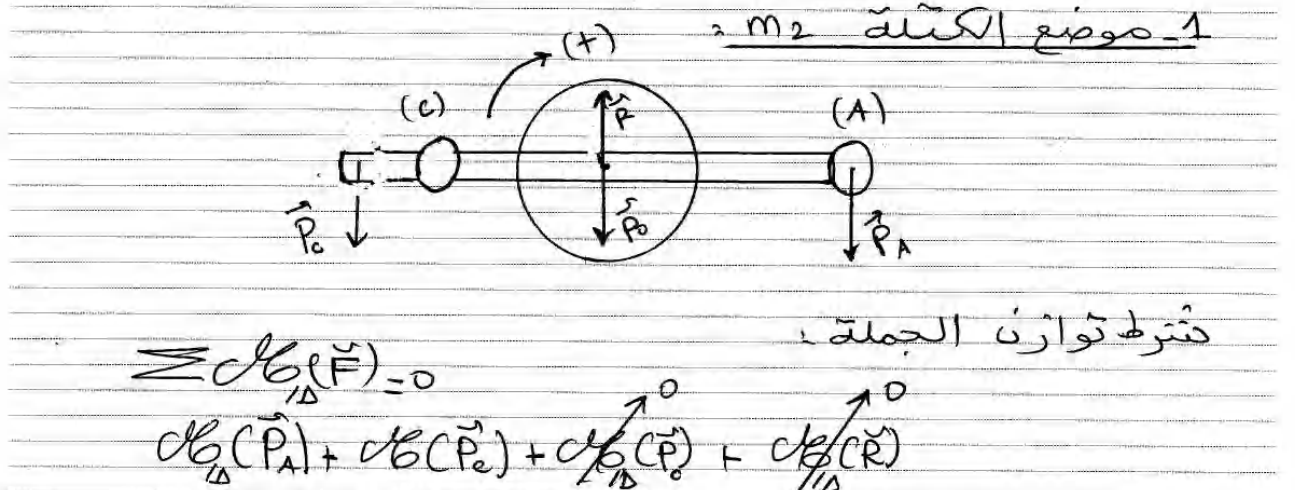 1- موضع الكتلة m2 :
(+)
(C) (A)
R⃗
P⃗c P⃗0 P⃗A
شرط توازن الجملة :
Σ ℳ/Δ(F⃗) = 0
ℳ/Δ(P⃗A) + ℳ(P⃗c) + ℳ/Δ(P⃗0) → 0 + ℳ/Δ(R⃗) → 0